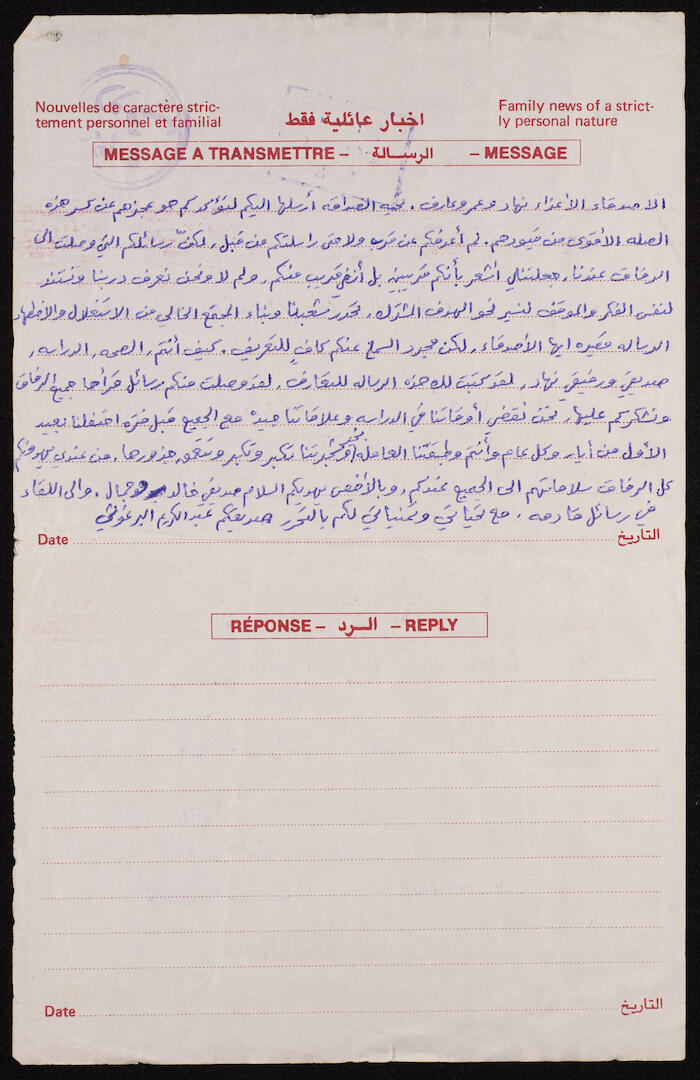 Nouvelles de caractère stric-
tement personnel et familial
اخبار عائلية فقط
Family news of a strict-
ly personal nature
MESSAGE A TRANSMETTRE – الرسالة – MESSAGE
الاصدقاء الأعزاء نهاد وعمر وعارف. تحيه الصداقه أرسلها اليكم لتؤكد لكم هو عجزهم عن كسر هذه
الصله الأقوى من قيودهم. لم أعرفكم عن قرب ولا حتى راسلتكم من قبل, لكنّ رسائلكم التي وصلت الى
الرفاق عندنا, جعلتني أشعر بأنكم قريبين بل أنني قريب منكم, ولم لا ونحن نعرف دربنا ونستند
لنفس الفكر والموقف لنسير نحو الهدف المشترك, تحرر شعبنا وبناء المجتمع الخالي من الاستغلال والاضطهاد
الرساله قصيره ايها الأصدقاء, لكن مجرد السمع عنكم كافٍ للتعريف. كيف أنتم, الصحه, الدراسه,
صديقي ورفيقي نهاد, لقد كتبت لك هذه الرساله للتعارف, لقد وصلت منكم رسائل قرأها جميع الرفاق
ونشكركم عليها, نحن نقضي أوقاتنا في الدراسه وعلاقاتنا جيدة مع الجميع قبل فتره احتفلنا بعيد
الأول من أيار وكل عام وأنتم وطبقتنا العامله بخير تجربتنا تكبر وتكبر وتتعمق جذورها, من عندي يهديكم
كل الرفاق سلاماتهم الى الجميع عندكم, وبالأخص يهديكم السلام صديقي خالد وجمال. والى اللقاء
في رسائل قادمه. مع تحياتي وتمنياتي لكم بالتحرر صديقكم عبد الكريم البرغوثي
Date التاريخ
RÉPONSE – الرد – REPLY
Date التاريخ